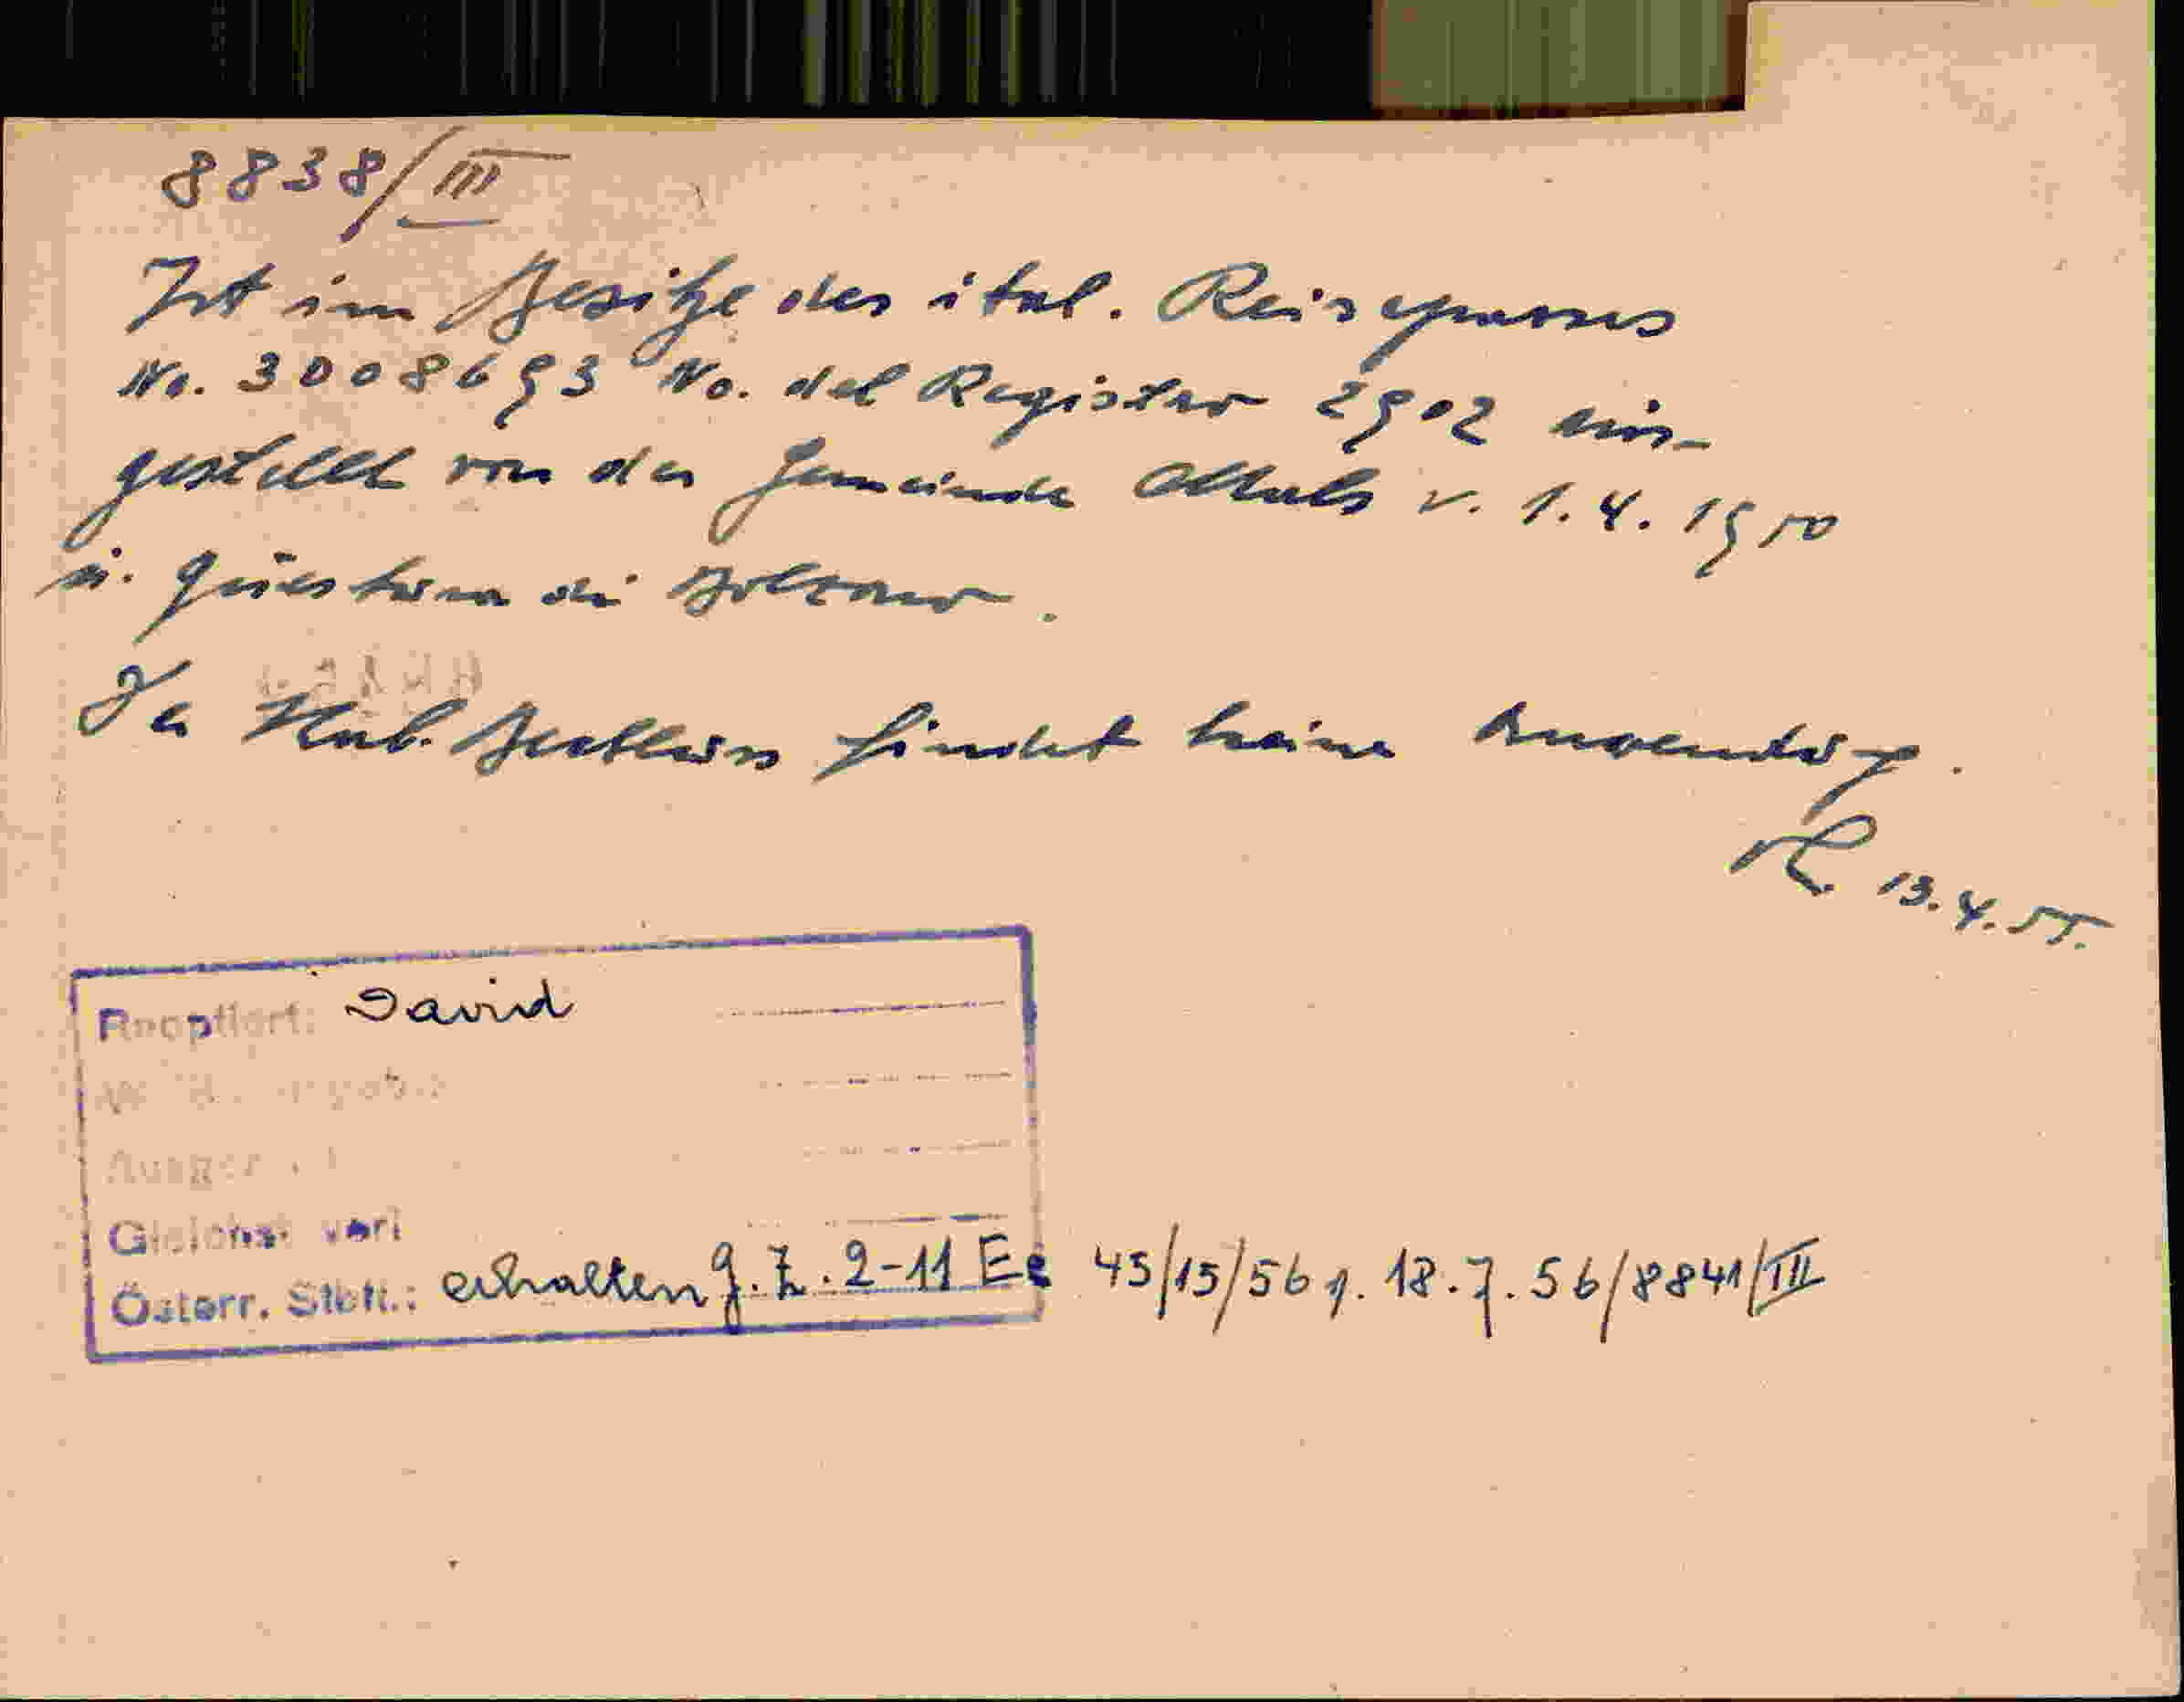 8838/III
Ist im Besitze des ital. Reisepasses
No. 3008693 No. del Registro 2902 aus-
gestellt von der Gemeinde v. 1.4.1950
u. Questura di Bolzano.
Der Kab. Beschluss findet keine Anwendung.
13.4.55.
Reoptiert: David
Gleichst. verl
Österr. Stbft.: erhalten g. Z. 2-11 Ee 45/15/56 v. 18.7.56/8841/III